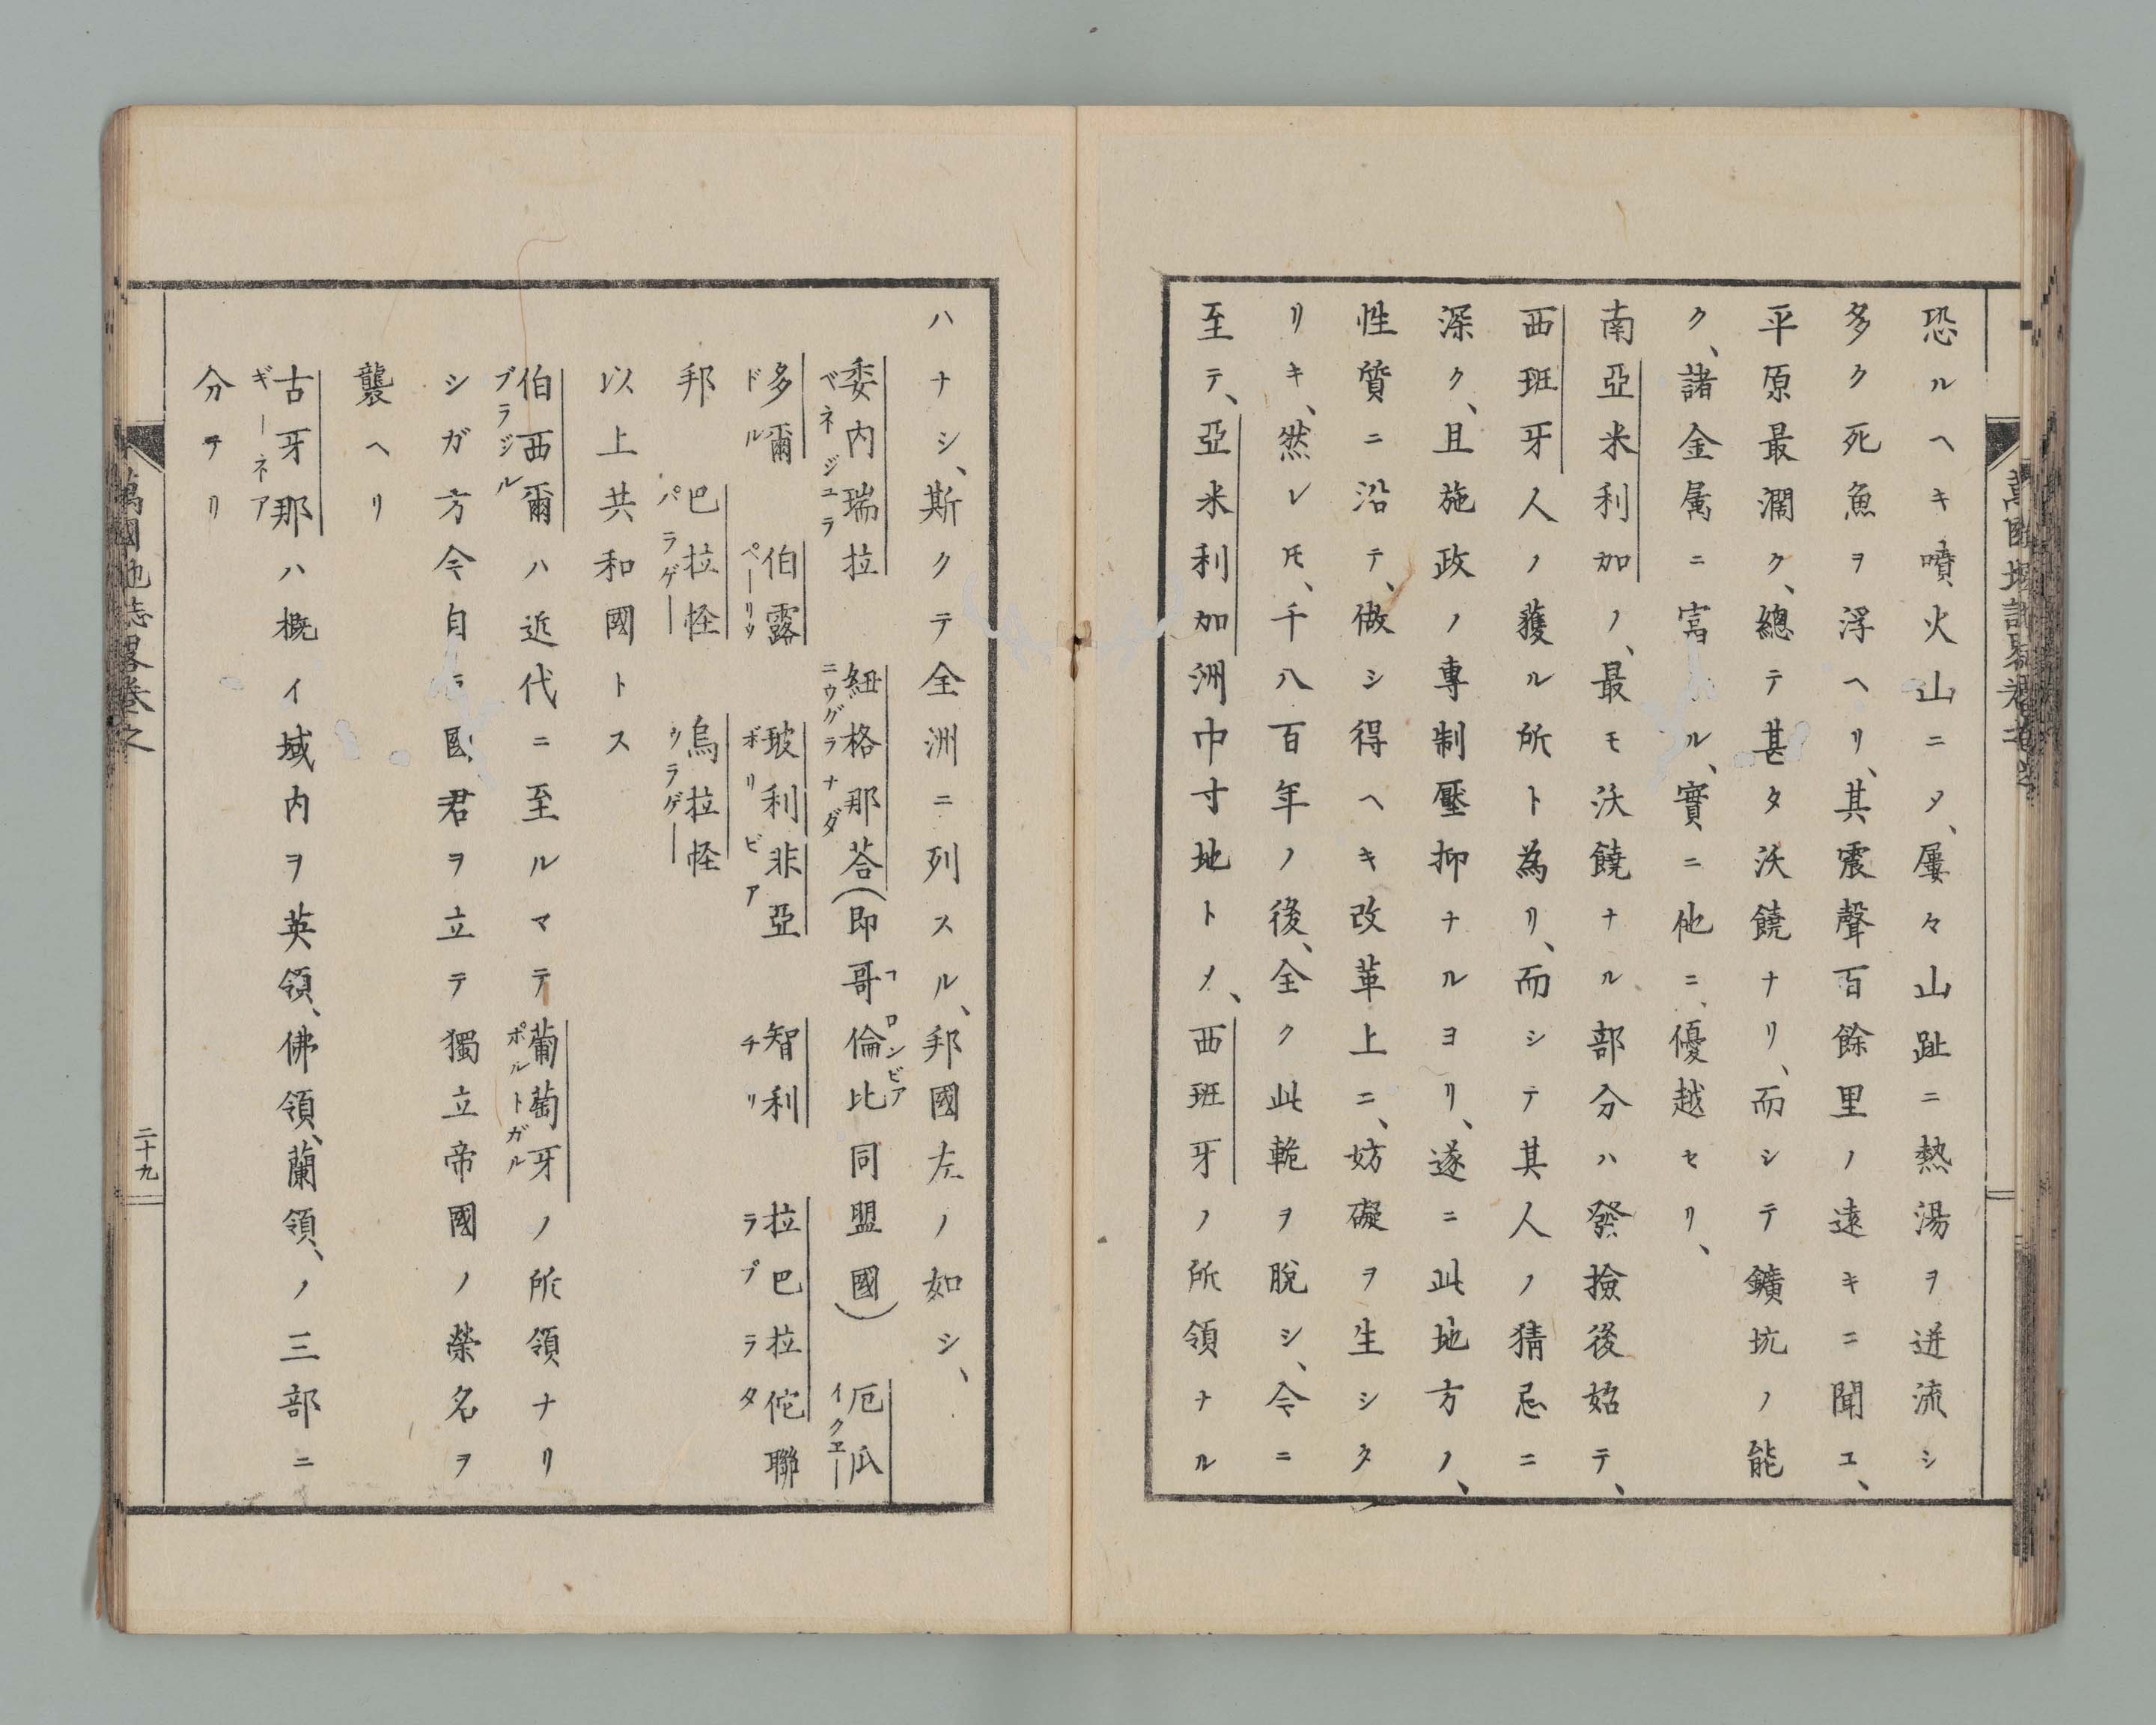 恐ルヘキ噴火山ニ〆、屢々山趾ニ熱湯ヲ迸流シ
多ク死魚ヲ浮ヘリ、其震聲百餘里ノ遠キニ聞エ、
平原最濶ク、總テ甚タ沃饒ナリ、而シテ鑛坑ノ能
ク、諸金属ニ富ル、實ニ他ニ、優越セリ、
南亞米利加ノ、最モ沃饒ナル部分ハ發撿後始テ、
西班牙人ノ獲ル所ト為リ、而シテ其人ノ猜忌ニ
深ク、且施政ノ專制壓抑ナルヨリ、遂ニ此地方ノ、
性質ニ沿テ、做シ得ヘキ改革上ニ、妨礙ヲ生シタ
リキ、然レ𪜈、千八百年ノ後、全ク此軛ヲ脫シ、今ニ
至テ、亞米利加洲中寸地ト〆、西班牙ノ所領ナル
ハナシ、斯クテ全洲ニ列スル、邦國左ノ如シ、
委内瑞拉 紐格那荅(即哥倫比同盟國) 厄瓜
ベネジユラ ニウグラナダ コロンビア イクヱー
多爾 伯露 玻利非亞 智利 拉巴拉佗聯
ドル ペーリウ ボリビア チリ ラプラタ
邦 巴拉怪 烏拉怪
パラゲー ウラゲー
以上共和國トス
伯西爾ハ近代ニ至ルマテ葡萄牙ノ所領ナリ
ブラジル ポルトガル
シガ方今自ラ國君ヲ立テ獨立帝國ノ榮名ヲ
襲ヘリ
古牙那ハ概イ域内ヲ英領、佛領、蘭領、ノ三部ニ
ギーネア
分テリ
萬國地誌畧卷之
二十九